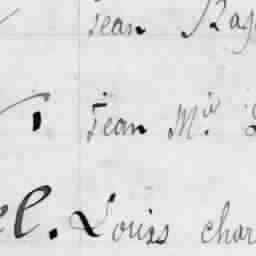 Jean
Jean M.ie
el. Louis char